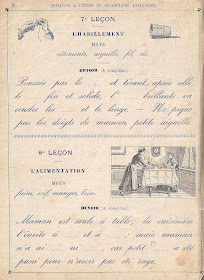 INITIATION A L'ÉTUDE DU VOCABULAIRE
7e LEÇON
L'HABILLEMENT
MOTS
vêtements, aiguille, fil, dé.
DEVOIR (à compléter).
Poussée par le et tirant, après elle
le fin et solide, l' brillante va
coudre les et le linge. — Ne pique
pas les doigts de maman, petite aiguille.
8e LEÇON
L'ALIMENTATION
MOTS
faim, soif, manger, boire.
DEVOIR (à compléter).
Maman est seule à table; la cuisinière
l'invite à et à mais maman
n'a ni ni car petit a été
puni pour n'avoir pas été sage.